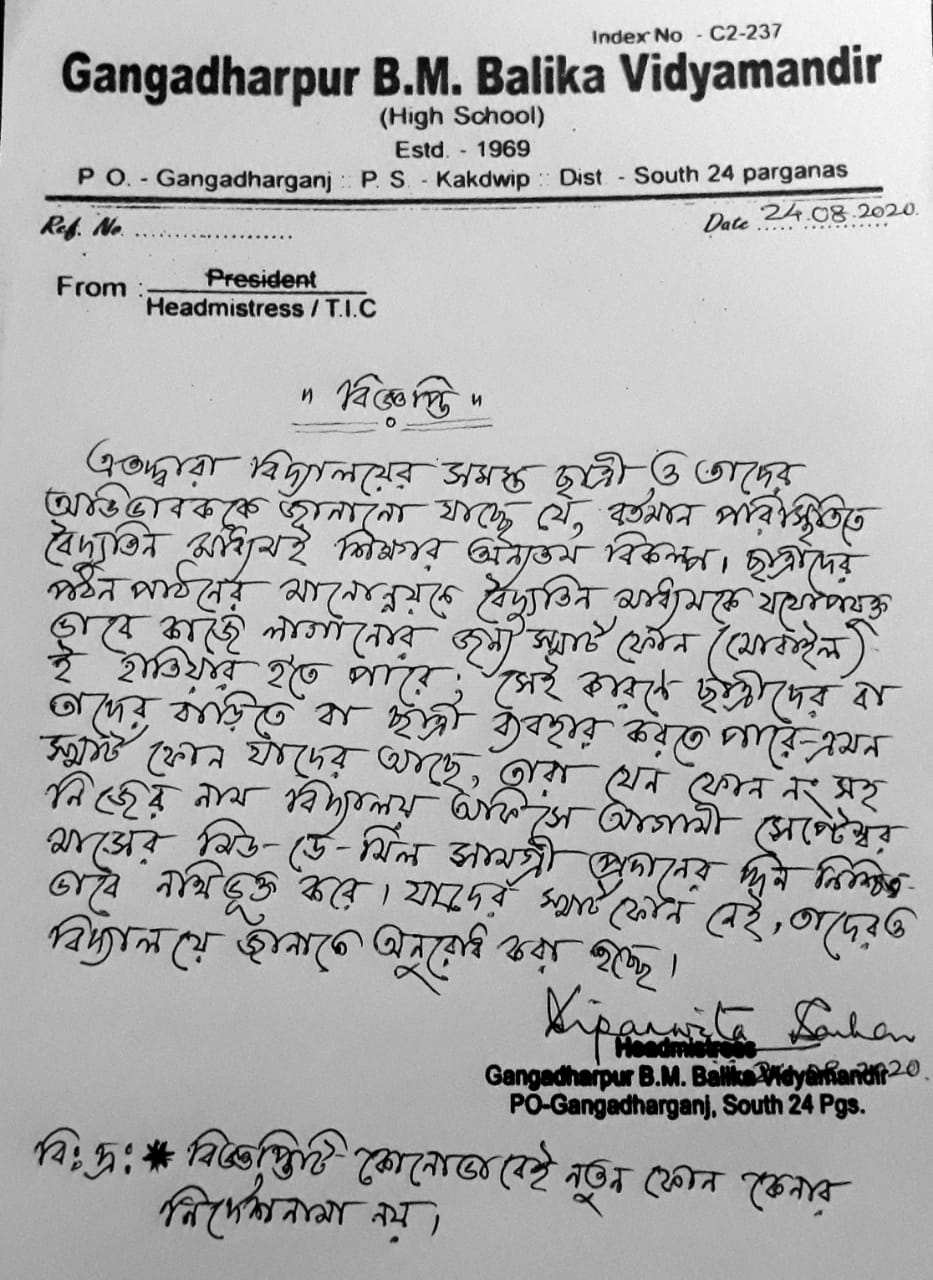 Index No - C2-237
Gangadharpur B.M. Balika Vidyamandir
(High School)
Estd. - 1969
P O. - Gangadharganj :: P. S. - Kakdwip :: Dist - South 24 parganas
Ref. No. ...................... Date 24.08.2020.
From : President
Headmistress / T.I.C
" বিজ্ঞপ্তি "
এতদ্বারা বিদ্যালয়ের সমস্ত ছাত্রী ও তাদের
অভিভাবককে জানানো যাচ্ছে যে, বর্তমান পরিস্থিতিতে
বৈদ্যুতিন মাধ্যমই শিক্ষার অন্যতম বিকল্প। ছাত্রীদের
পঠন পাঠনের মানোন্নয়নে বৈদ্যুতিন মাধ্যমকে যথোপযুক্ত
ভাবে কাজে লাগানোর জন্য স্মার্ট ফোন (মোবাইল)
ই হাতিয়ার হতে পারে; সেই কারণে ছাত্রীদের বা
তাদের বাড়িতে বা ছাত্রী ব্যবহার করতে পারে-এমন
স্মার্ট ফোন যাদের আছে, তারা যেন ফোন নং সহ
নিজের নাম বিদ্যালয় অফিসে আগামী সেপ্টেম্বর
মাসের মিড-ডে-মিল সামগ্রী প্রদানের দিন নিশ্চিত-
ভাবে নথিভুক্ত করে। যাদের স্মার্ট ফোন নেই, তাদেরও
বিদ্যালয়ে জানাতে অনুরোধ করা হচ্ছে।
Headmistress
Gangadharpur B.M. Balika Vidyamandir
PO-Gangadharganj, South 24 Pgs.
বি: দ্র: * বিজ্ঞপ্তিটি কোনোভাবেই নতুন ফোন কেনার
নির্দেশনামা নয়।